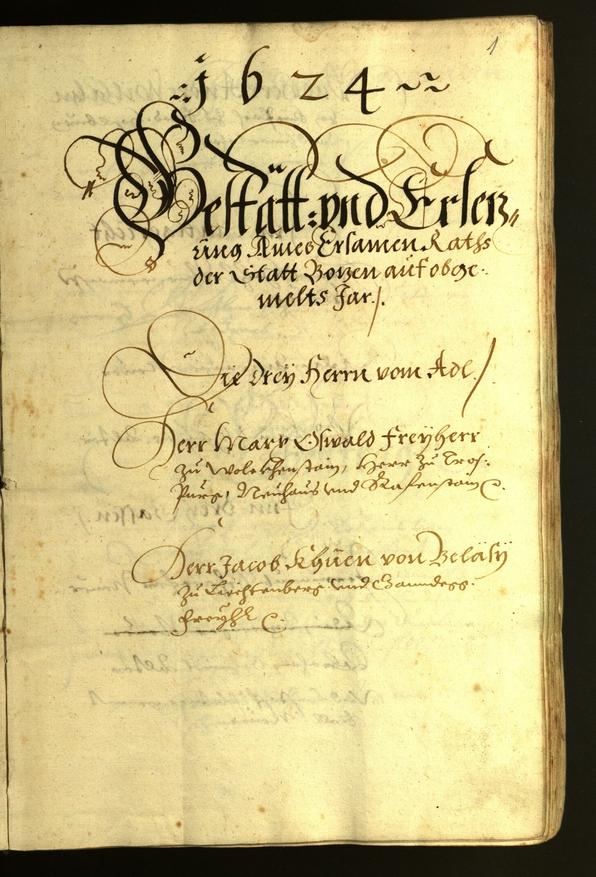 1
1624
Bestätt: vnd Ersetz=
ung Aines Ersamen Raths
der Statt Bozen auf obge:
melts Jar.
Die dreÿ Herrn vom Adl.
Herr Marx Oswald Freÿherr
zu Wolckhenstain, Herr zu Tros:
purg, Neuhaus vnd
Herr Jacob Khüen von Beläsÿ
zu Liechtenberg vnd Ganndegg.
Freyh